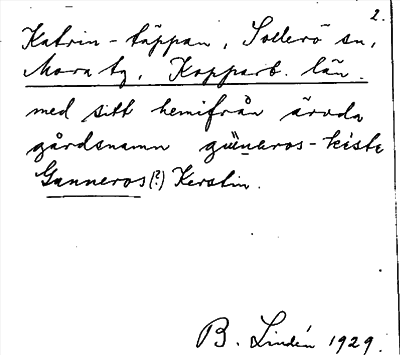 2.
Katrin-täppan, Sollerö sn,
Mora tg, Kopparb. län.
med sitt hemifrån ärvda
gårdsnamn
Gunneros(?) Kerstin.
B. Lindén 1929.